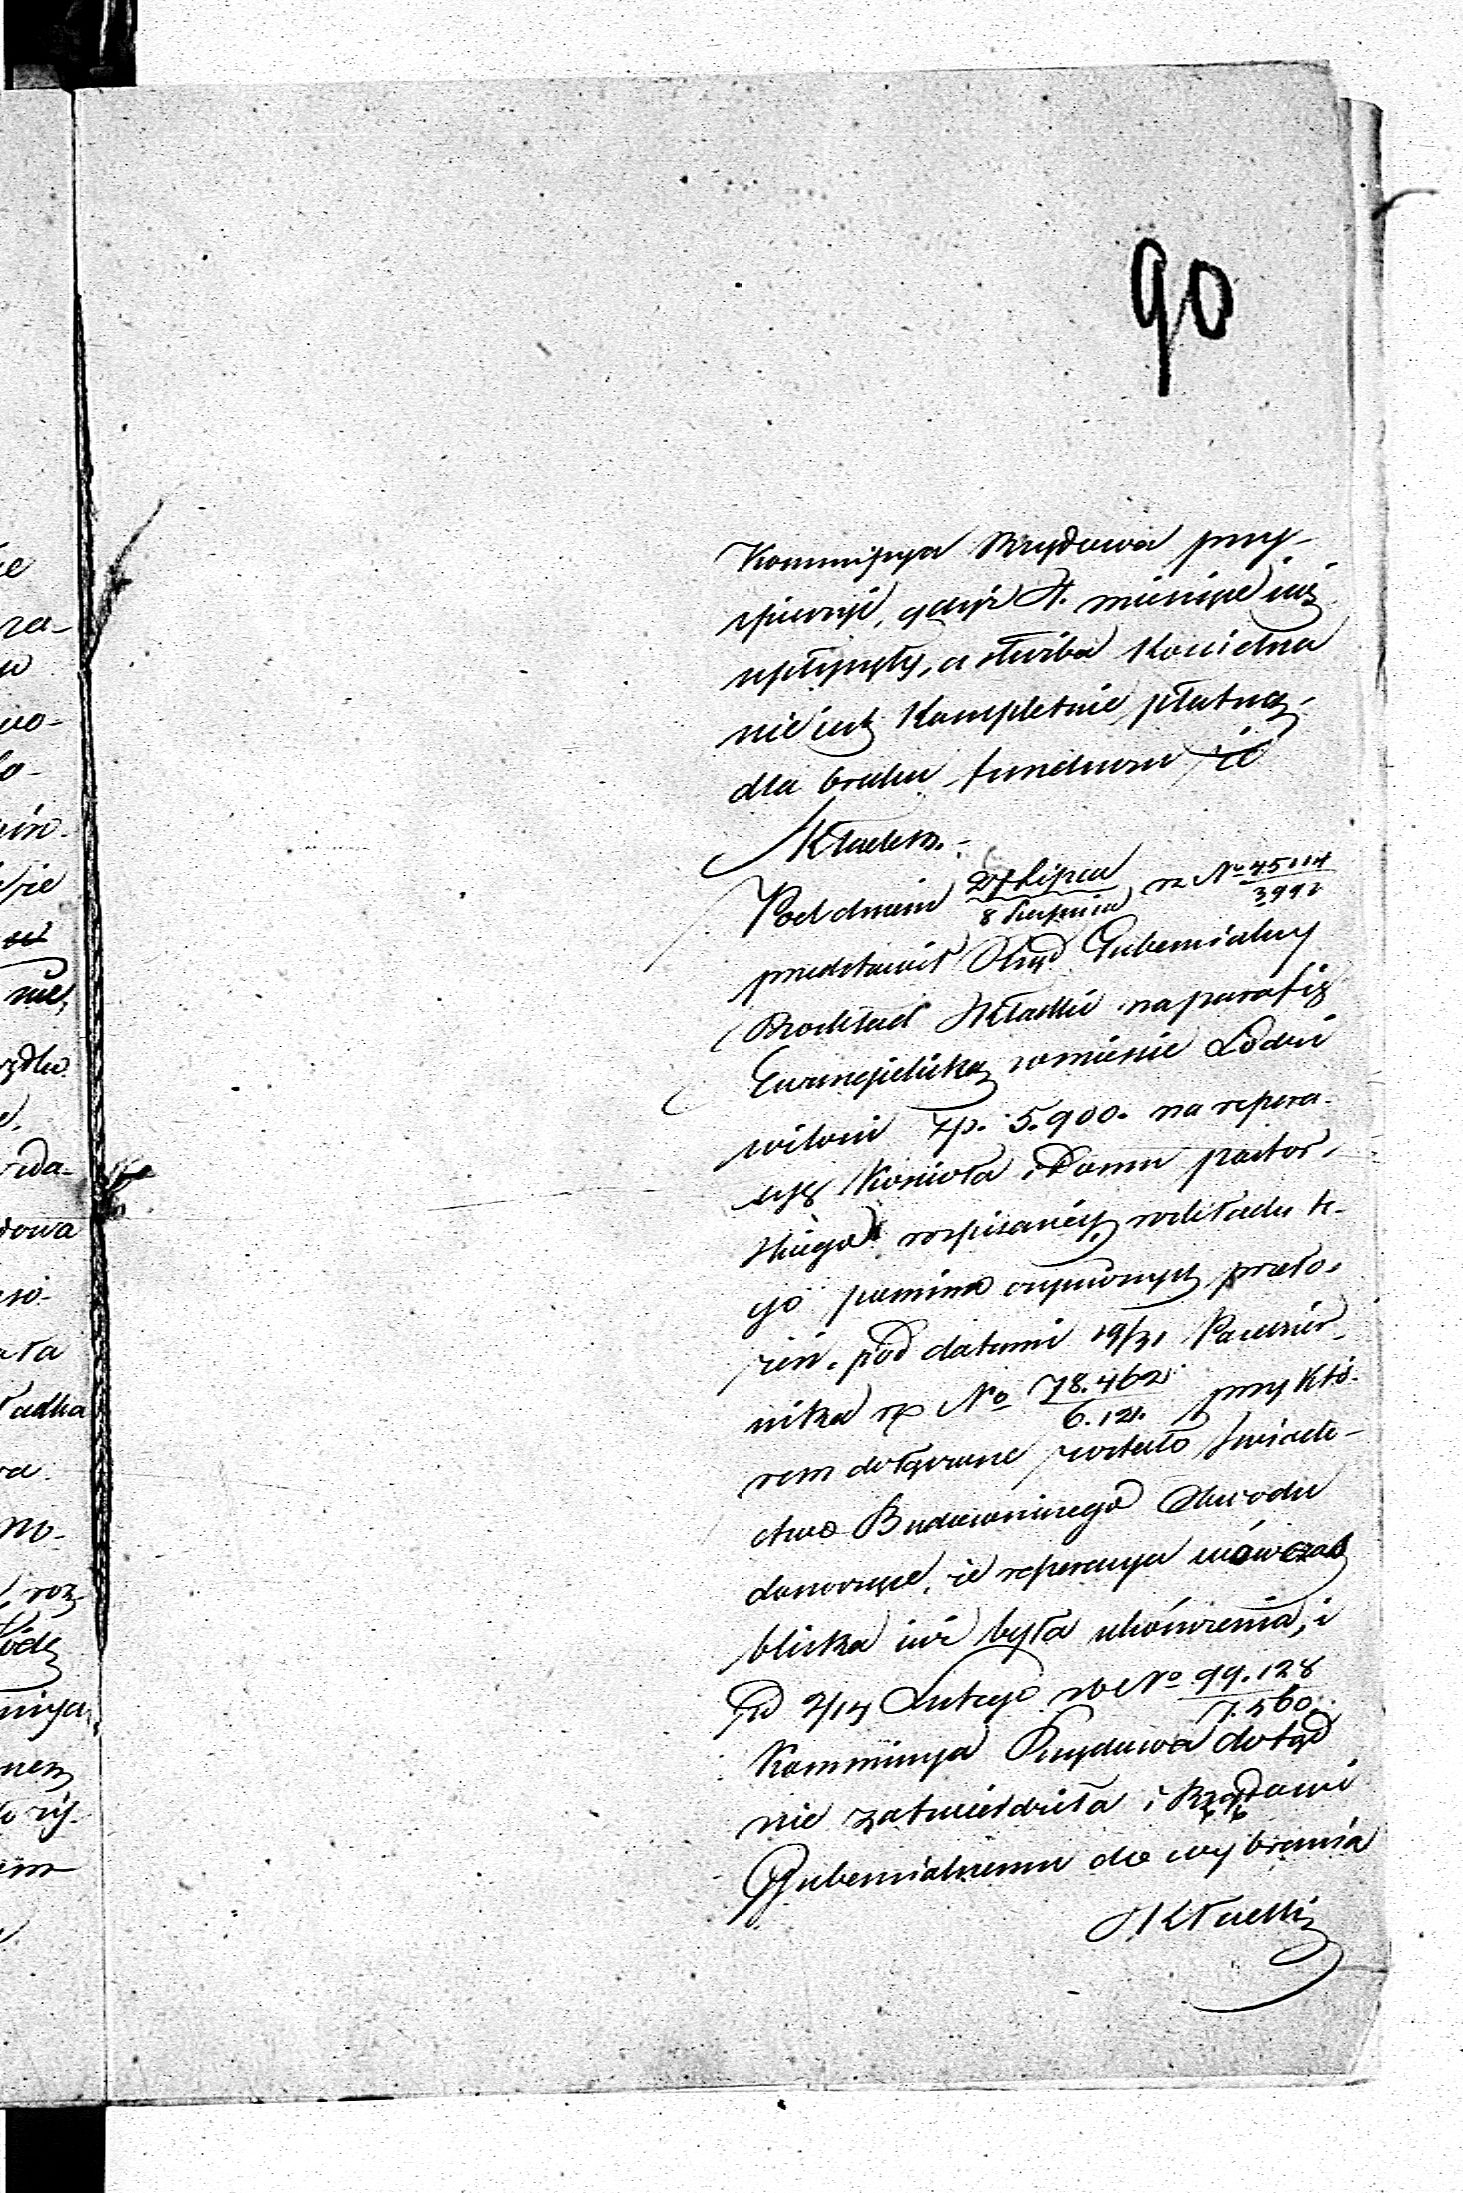 90
Kommissya Rządowa przy-
spieszyć, gdyż 4. miesiące już
upłynęły, a służba Kościelna
nie jest kompletnie płatną
dla braku funduszu ze
składek.-
Pod dniem 27 Lipca / 8 Sierpnia za No 45114 / 3992
przedstawił Rząd Gubernialny
Rozkład składki na parafią
Ewangielicką w mieście Łodzi
w ilości Zp. 5.900. na repera-
cyą Kościoła i Domu pastor-
skiego rozpisanéy, rozkładu te-
go pomimo częściowych przeło-
żeń, pod datami 19/31 Paździer-
nika za No 78.462 / 6.121. przy któ-
rem dołączone zostało świade-
ctwo Budowniczego Obwodu
donoszące, że reperacya wówczas
bliska już była ukończenia, i
pd 2/14 Lutego rb No 99.128 / 7.560.
Kommissya Rządowa dotąd
nie zatwierdziła i Rządowi
Gubernialnemu do wybrania
składki
ra-
wo-
nie,
owa
adka
roz-
nem